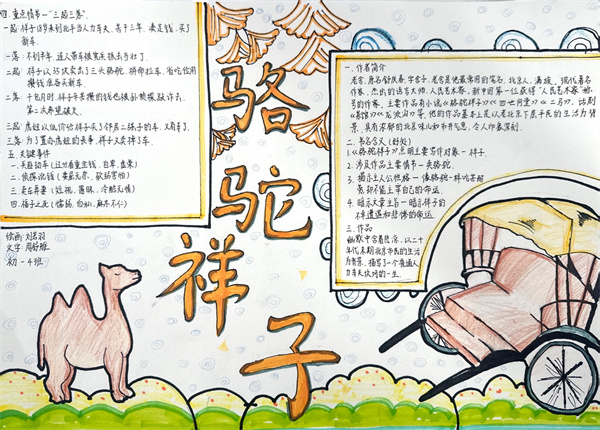 骆驼祥子
四. 重点情节一"三起三落".
一起: 祥子18岁来到北平当人力车夫, 苦干三年, 凑足钱, 买了
新车.
一落: 不到半年, 连人带车被宪兵抓去当壮丁.
二起: 祥子以35块卖出了三头骆驼, 拼命拉车, 省吃俭用
攒钱准备买新车.
二落: 干包月时, 祥子辛苦攒的钱也被孙侦探敲诈去.
第二次希望破灭.
三起: 虎妞以低价给祥子买了邻居二强子的车, 又有车了.
三落: 为了置办虎妞的丧事, 祥子又卖掉了车.
五. 关键事件
二. 侦探
绘画 刘
文字 周
初一4班
一. 作者简介
老舍, 原名舒庆春, 字舍予. 老舍是他最常用的笔名. 北京人. 满族, 现代著名
作家. 杰出的语言大师, 人民艺术家. 新中国第一位获得"人民艺术家"称
号的作家, 主要作品有小说《骆驼祥子》《四世同堂》《二马》, 话剧
《茶馆》《龙须沟》等, 他的作品基本上是以老北京下层平民的生活为背
景, 具有浓郁的北京味儿和市井气息. 令人印象深刻.
二. 书名含义 (好处)
1.《骆驼祥子》点明主要写作对象一祥子.
2. 涉及作品主要情节一卖骆驼.
3. 揭示主人公性格一像骆驼一样吃苦耐
劳却不能主宰自己的命运.
4. 暗示文章主旨一暗示祥子的
悲惨的命运.
三. 作品
幽默中含着悲凉, 以二十
年代末期北京市民的生活
为背景, 描写了一个普通人
力车夫坎坷的一生.